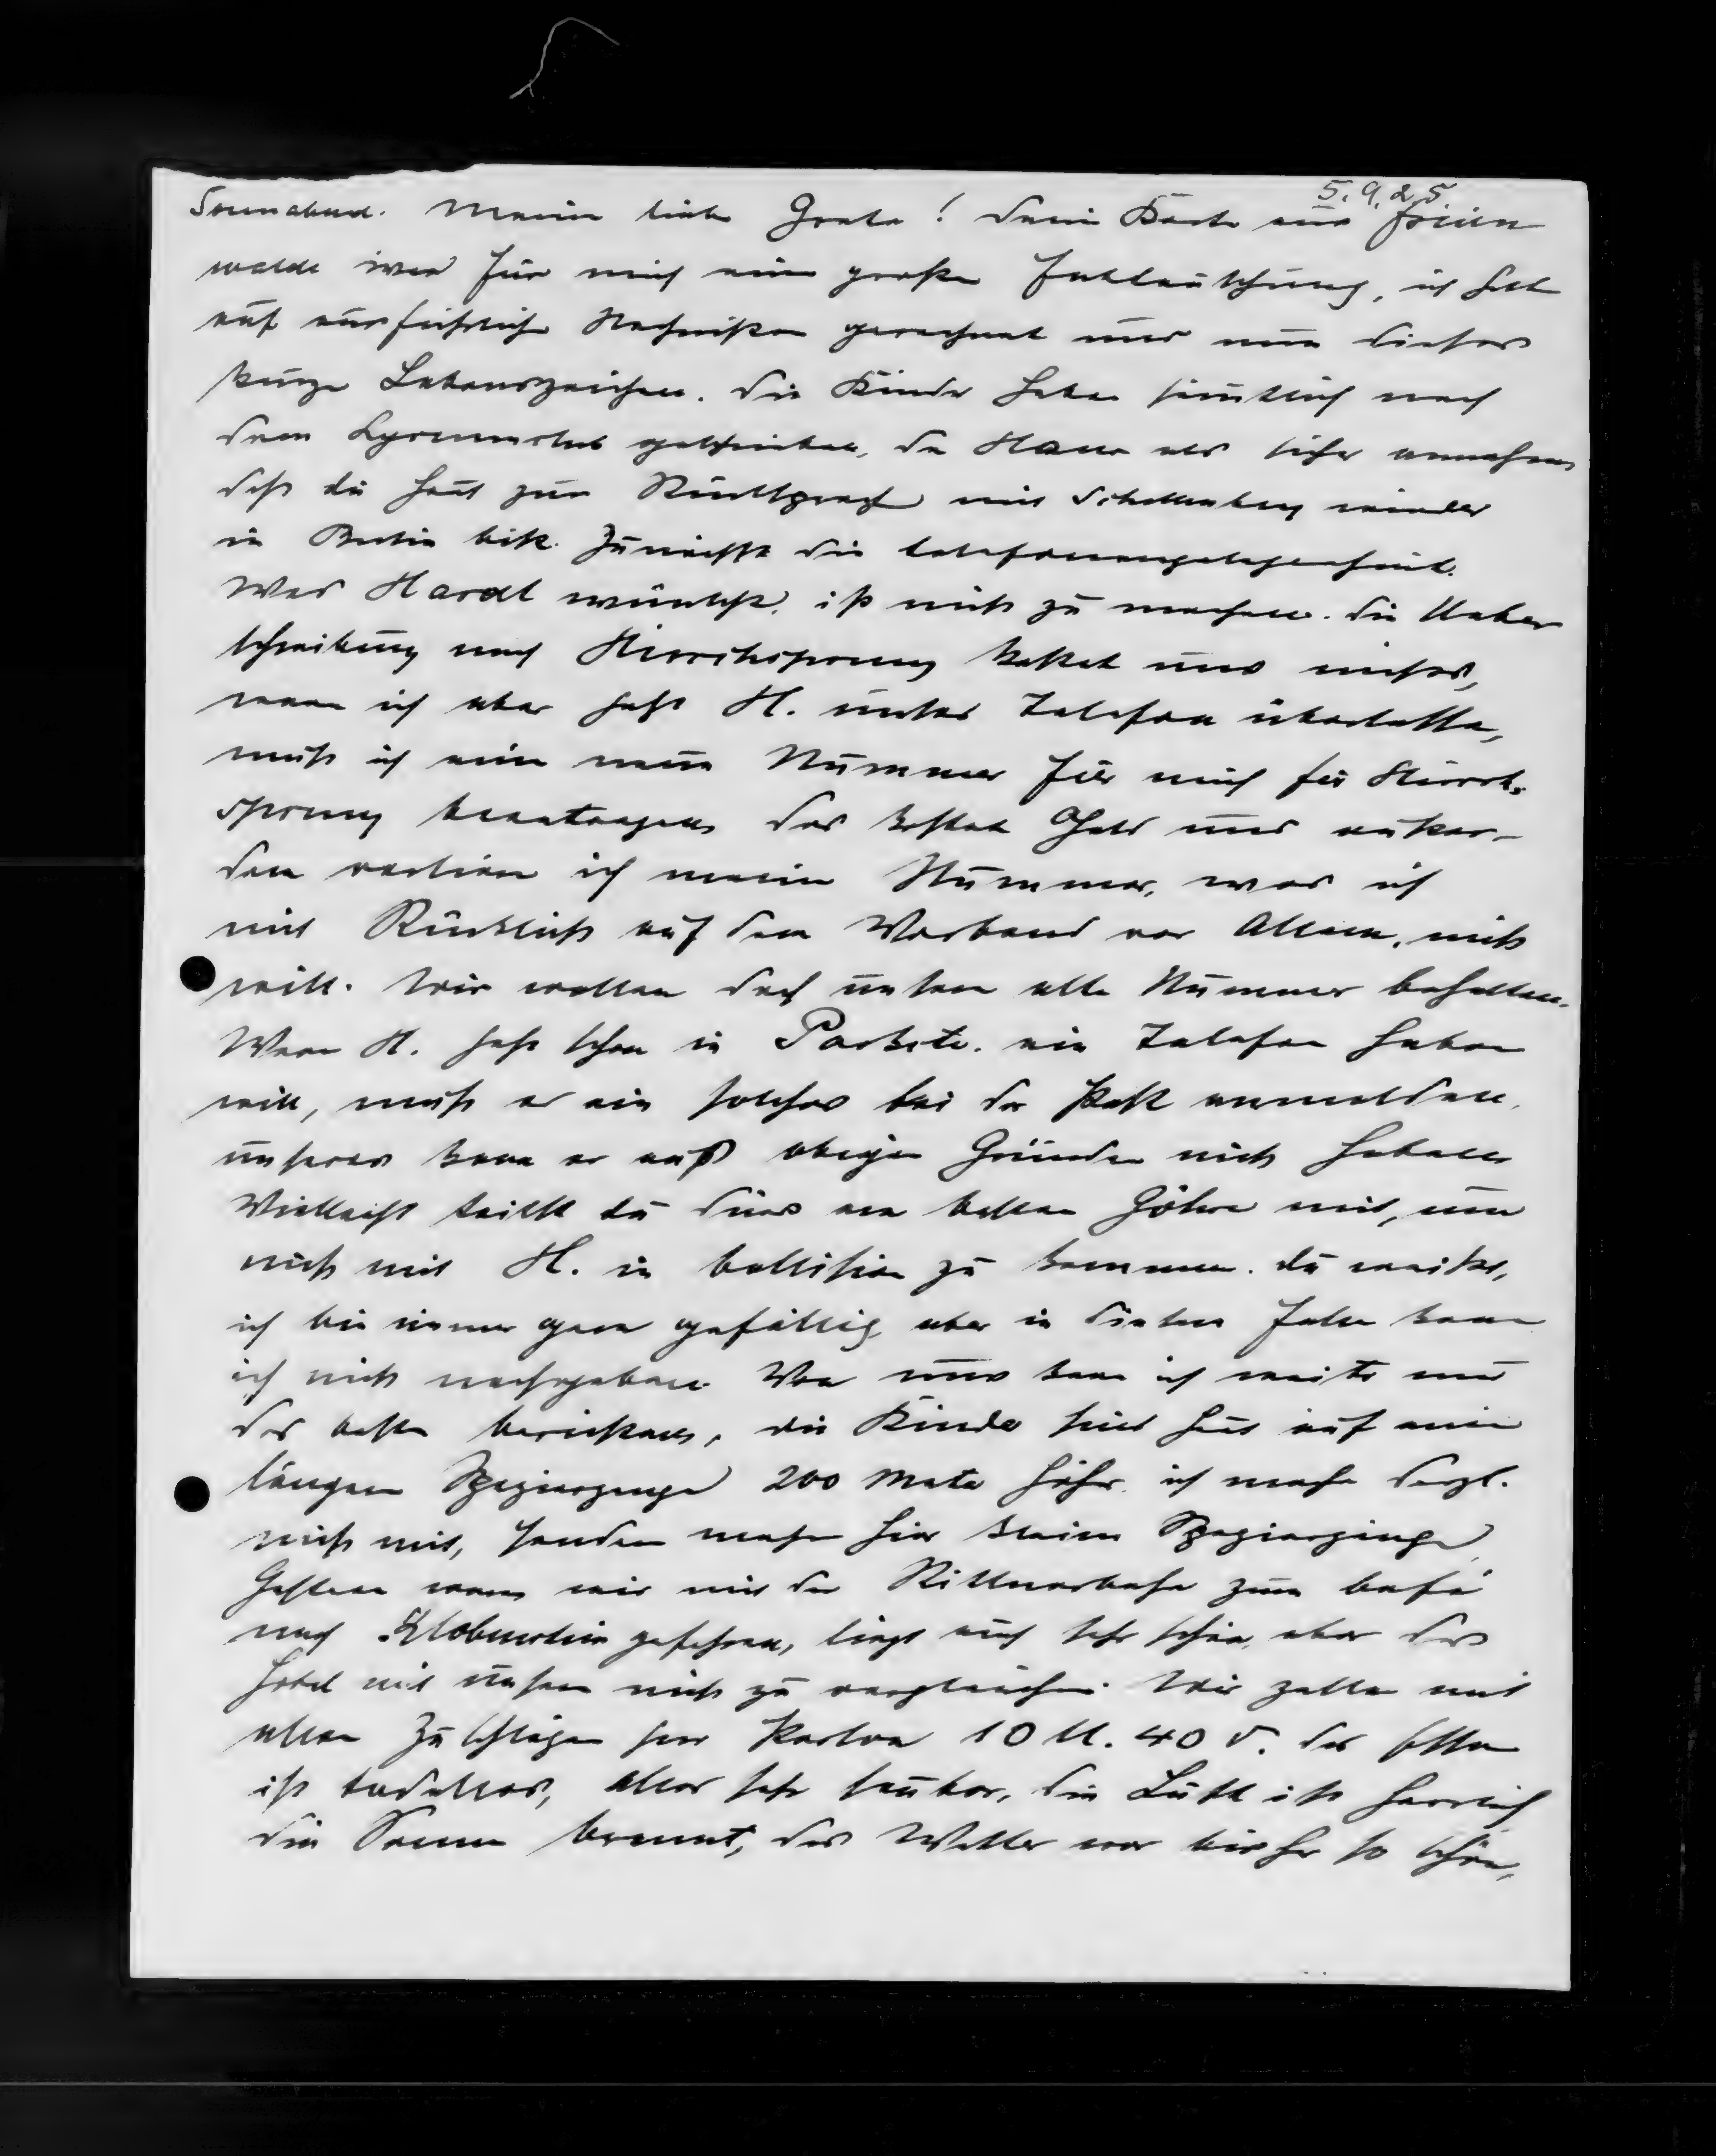 5.9.25
Sonnabend. Meine liebe Grete! Deine Karte aus Freien
walde war für mich eine große Enttäuschung, ich hatte
auf ausführliche Nachricht gerechnet und nun dieses
kurze Lebenszeichen. Die Kinder haben sämtlich nach
dem Lyceumclub geschrieben, da Hans als sicher annahm
daß du heut zur Rücksprache mit Schellenberg wieder
in Berlin bist. Zunächst die Telefonangelegenheit.
Was Hardt wünscht, ist nicht zu machen. Die Ueber
schreibung nach Hirschsprung kostet uns nichts,
wenn ich aber jetzt H. unser Telefon überlasse,
muß ich eine neue Nummer für mich für Hirsch-
sprung beantragen das kostet Geld und außer-
dem verliere ich meine Nummer, was ich
mit Rücksicht auf den Verband vor Allem, nicht
will. Wir wollen doch unsere alte Nummer behalten.
Wenn H. jetzt schon in Parkstr. ein Telefon haben
will, muß er ein solches bei der Post anmelden,
unseres kann er aus obigen Gründen nicht haben
Vielleicht teilst du dies am besten Göhre mit, um
nicht mit H. in Collision zu kommen. Du weißt,
ich bin immer gern gefällig aber in diesem Falle kann
ich nicht nachgeben. Von uns kann ich weiter nur
das beste berichten, die Kinder sind heut auf einem
längeren Spaziergange 200 Meter höher, ich mache dergl.
nicht mit, sondern mache hier kleine Spaziergänge
Gestern waren wir mit der Rittnerbahn zum Café
nach Klobenstein gefahren, liegt auch sehr schön, aber das
Hotel mit unserm nicht zu vergleichen. Wir zahlen mit
allen Zuschlägen pro Person 10 M. 40 d. Das Essen
ist tadellos, alles sehr sauber, die Luft ist herrlich
die Sonne brennt, das Wetter war bisher so schön,